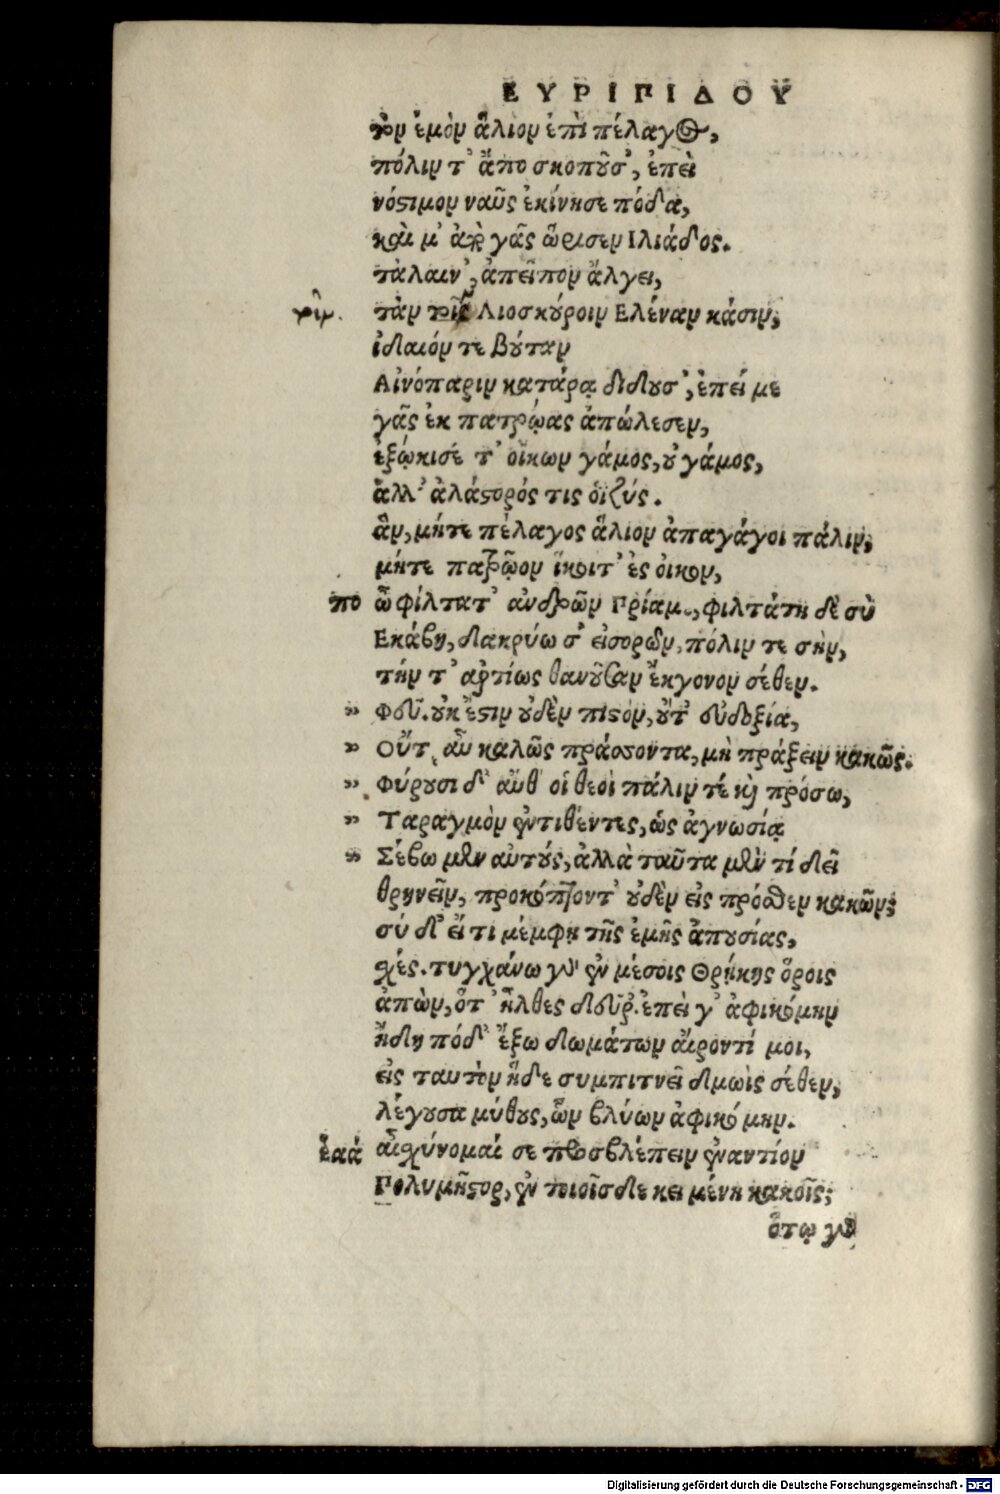 ΕΥΡΙΠΙΔΟΥ
τὸν ἐμὸν ἅλιον ἐπὶ πέλαγος,
πόλιν τ' ἄπο σκοποῦσ', ἐπεὶ
νόστιμον ναῦς ἐκίνησε πόδα,
καὶ μ' ἀπὸ γᾶς ὥρισεν Ιλιάδος.
τάλαιν', ἀπεῖπον ἄλγει,
τὰν τοῖν Διοσκόροιν Ελέναν κάσιν,
ἰδαιόν τε βούταν
Αἰνόπαριν κατάρᾳ διδοῦσ', ἐπεί με
γᾶς ἐκ πατρῴας ἀπώλεσεν,
ἐξῴκισέ τ' οἴκων γάμος, οὐ γάμος,
ἀλλ' ἀλάστορός τις ὀϊζύς.
ἃν, μήτε πέλαγος ἅλιον ἀπαγάγοι πάλιν,
μήτε πατρῷον ἵκοιτ' ἐς οἶκον,
πο ὦ φίλτατ' ἀνδρῶν Πρίαμε, φιλτάτη δὲ σὺ
Εκάβη, δακρύω σ' εἰσορῶν, πόλιν τε σὴν,
τήν τ' ἀρτίως θανοῦσαν ἔκγονον σέθεν.
" Φεῦ. οὐκ ἔστιν οὐδὲν πιστόν, οὔτ' εὐδοξία,
" Οὔτ' αὖ καλῶς πράσσοντα, μὴ πράξειν κακῶς.
" Φύρουσι δ' αὖθ' οἱ θεοὶ πάλιν τέ καὶ πρόσω,
" Ταραγμὸν ἐντιθέντες, ὡς ἀγνωσίᾳ
" Σέβω μὲν αὐτούς, ἀλλὰ ταῦτα μὲν τί δεῖ
θρηνεῖν, προκόπτοντ' οὐδὲν εἰς πρόσθεν κακῶν;
σύ δ' εἴ τι μέμφῃ τῆς ἐμῆς ἀπουσίας,
σχές. τυγχάνω γὰρ ἐν μέσοις Θρῄκης ὅροις
ἀπὼν, ὅτ' ἦλθες δεῦρ'. ἐπεὶ γ' ἀφικόμην
ἤδη πόδ' ἔξω δωμάτων αἴροντί μοι,
εἰς ταυτὸν ἥδε συμπιτνεῖ δμωὶς σέθεν,
λέγουσα μύθους, ὧν βλύων ἀφικόμην.
ἑκά αἰσχύνομαί σε προσβλέπειν ἐναντίον
Πολυμῆστορ, ἐν τοιοῖσδε κειμένη κακοῖς;
ὅτῳ γὰρ
Digitalisierung gefördert durch die Deutsche Forschungsgemeinschaft - DFG